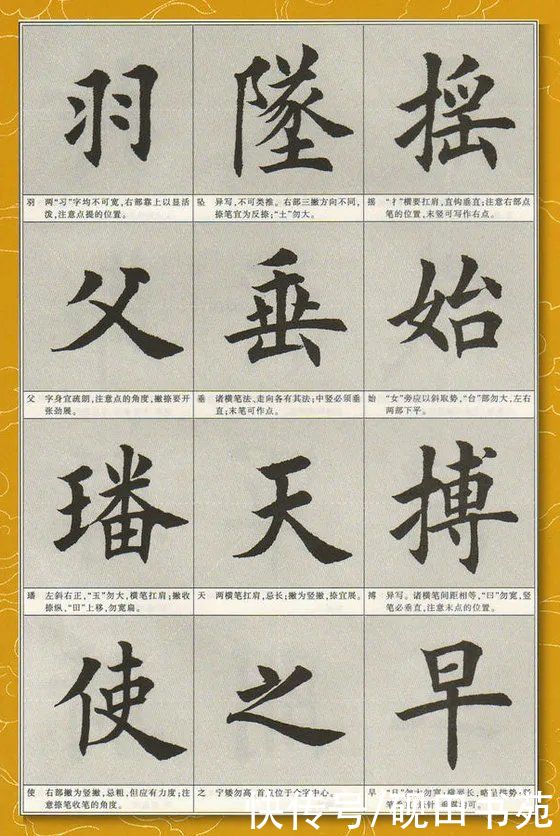 羽 墜 摇
羽 两“习”字均不可宽,右部靠上以显活
泼,注意点提的位置。
坠 异写,不可类推。右部三撇方向不同,
捺笔宜为反捺;“土”勿大。
摇 “扌”横要扛肩,直钩垂直;注意右部点
笔的位置,末竖可写作右点。
父 垂 始
父 字身宜疏朗,注意点的角度,撇捺要开
张劲展。
垂 诸横笔法、走向各有其法;中竖必须垂
直;末笔可作点。
始 “女”旁应以斜取势,“台”部勿大,左右
两部下平。
璠 天 搏
璠 左斜右正,“玉”勿大,横笔扛肩;撇收
捺纵,“田”上移,勿宽扁。
天 两横笔扛肩,总长;撇为竖撇,捺宜展。
搏 异写。诸横笔间距相等,“日”勿宽,竖
笔必垂直,注意末点的位置。
使 之 早
使 右部撇为竖撇,总粗,但应有力度;注
意捺笔收笔的角度。
之 字矮勿高,首点位于全字中心。
早 “日”勿大勿宽;横要长,略呈拱势;竖
均可。
快传号/砚田书苑